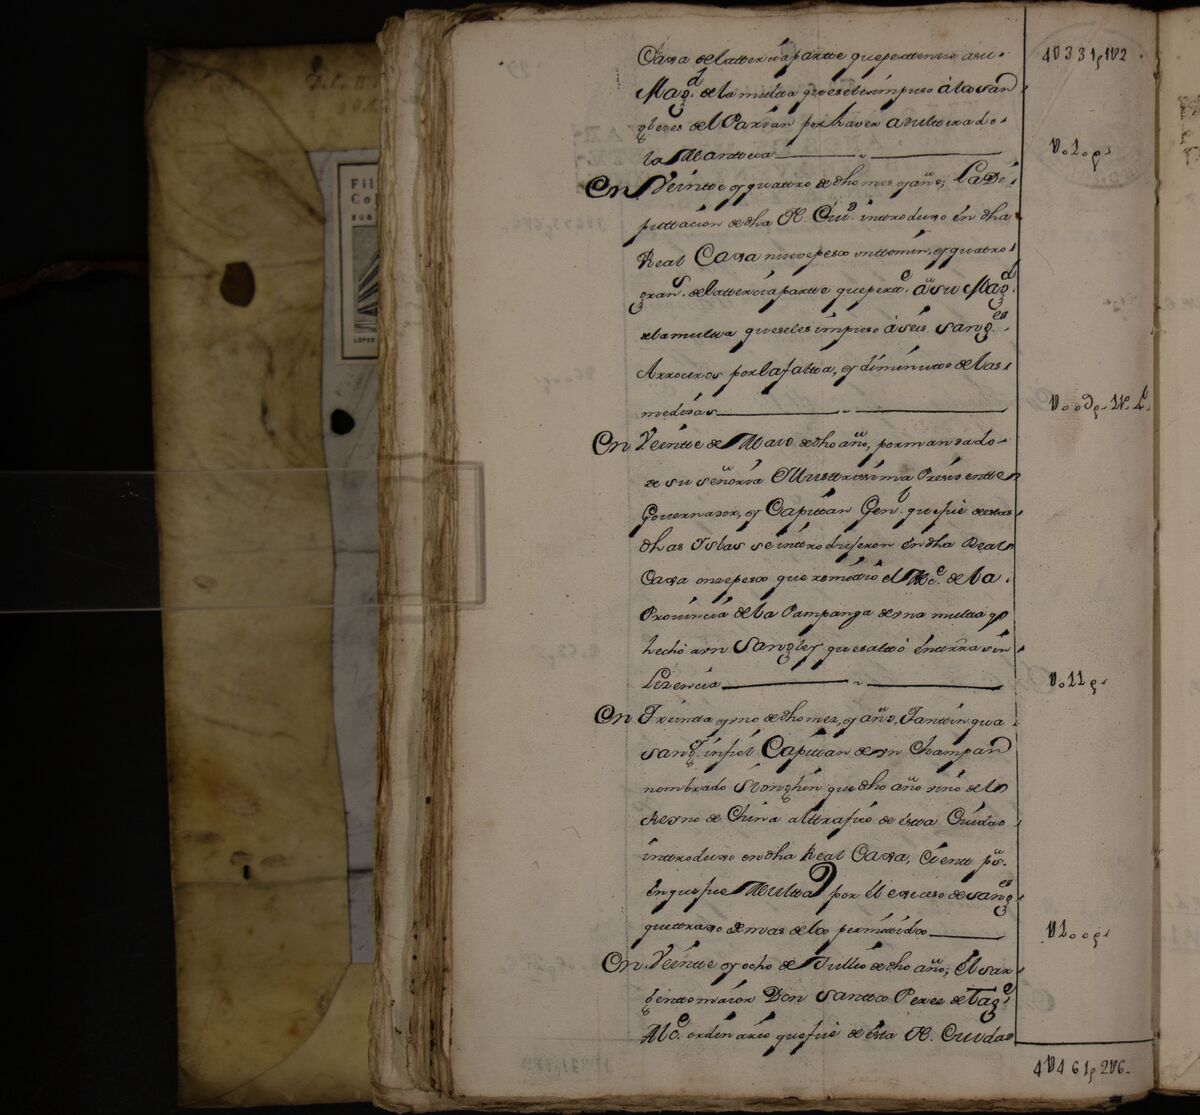 Caxa de la tterciapartte que perttenese a su
Magd. de la multta que se les impuso â los san
gleyes del Parian por haver adultterado
la Mantteca
4U331ps1U2
U.10.ps
En Veintte y quattro de dho mes y año, La Di
puttacion de dha N. Ciud. inttroduxo en dha
Real Caxa nuevepesos vnttomin, y quatro
grans. de la tterciapartte quepertte. â su Magd.
de la multta que se les impuso â seis sangles.
Arroceros por la faltta, y diminuto de las
medidas
U..9ps.1U.4
En Veintte de Mayo de dho año, por mandado
de su señoria Illusttrissima Presidentte
Governador, y Capittan Genl. que fue de estas
dhas Yslas se inttrodujeron en dha Real
Caxa onzepesos que remittio el Alce. de la
Provincia de la Pampanga de vna multta q
hecho a vn Sangley que saltto en tierra sin
Lizencia
U.11ps
En Treintta y vno de dho mes, y año, Tanttinqua
sangy. infiel Capittan de vn Champan
nombrado Sionghin que dho año vino del
Reyno de China al ttrafico de estta Ciudad
inttroduxo en dha Real Caxa, Cientt ps.
en que fue Multtado por el exceso de sangles
que ttraxo demas de los permitidos
U100ps
En Veintte y ocho de Jullio de dho año, el sar
genttomaior Don Santtos Perez de Tagle
Alce. ordinario que fue de esta N. Ciudad
4U461ps2U6